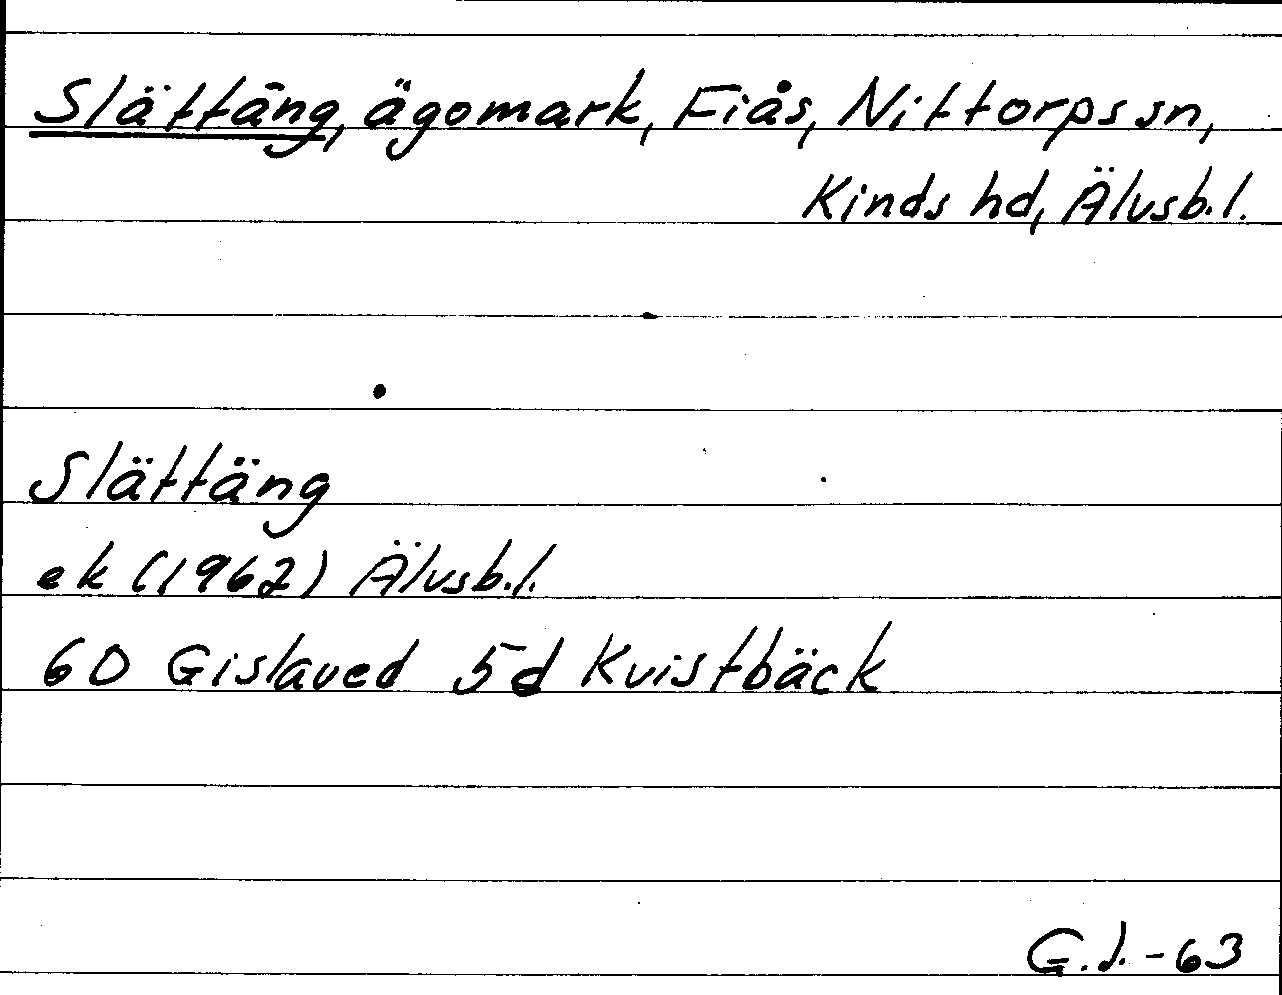 Slättäng, ägomark, Fiås, Nittorps sn,
Kinds hd, Älvsb.l.
Slättäng
ek (1962) Älvsb.l.
60 Gislaved 5d Kvistbäck
G.J. -63